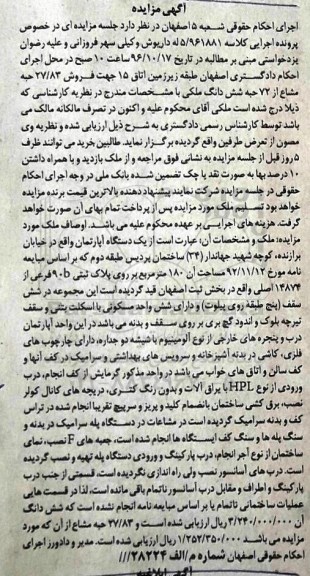 آگهی مزایده
اجرای احکام حقوقی شعبه ۵ اصفهان در نظر دارد جلسه مزایده ای در خصوص
پرونده اجرایی کلاسه ۵/۹۶۱۸۸۱ له داریوش وکیلی سهر فروزانی و علیه رضوان
یزدخواستی مبنی بر مطالبه در تاریخ ۹۶/۱۰/۱۷ ساعت ۱۰ صبح در محل اجرای
احکام دادگستری اصفهان طبقه زیرزمین اتاق ۱۵ جهت فروش ۲۷/۸۳ حبه
مشاع از ۷۲ حبه شش دانگ ملکی با مشخصات مندرج در نظریه کارشناسی که
ذیلا درج شده است ملکی آقای محکوم علیه و اکنون در تصرف مالکانه مالک می
باشد توسط کارشناس رسمی دادگستری به شرح ذیل ارزیابی شده و نظریه وی
مصون از تعرض طرفین واقع گردیده برگزار نماید. طالبین خرید می توانند ظرف
۵ روز قبل از جلسه مزایده به نشانی فوق مراجعه و از ملک بازدید و با همراه داشتن
۱۰ درصد بها به صورت نقد یا چک تضمین شده بانک ملی در وجه اجرای احکام
حقوقی در جلسه مزایده شرکت نمایند پیشنهاد دهنده بالاترین قیمت برنده مزایده
خواهد بود تسلیم ملک مورد مزایده پس از پرداخت تمام بهای آن صورت خواهد
گرفت. هزینه های اجرایی بر عهده محکوم علیه می باشد. اوصاف ملک مورد
مزایده: ملک و مشخصات آن: عبارت است از یک دستگاه آپارتمان واقع در خیابان
برازنده، کوچه شهید جهاندار (۳۴) ساختمان پردیس طبقه دوم که بر اساس مبایعه
نامه مورخ ۹۲/۱۱/۱۲ مساحت آن ۱۸۰ مترمربع بر روی پلاک ثبتی ۹۰b فرعی از
۱۴۸۷۴ اصلی واقع در بخش ثبت اصفهان قید گردیده است این مجموعه در شش
سقف (پنج طبقه روی پیلوت) و دارای شش واحد مسکونی با اسکلت بتنی و سقف
تیرچه بلوک و اندود گچ بری بر روی سقف و بدنه می باشد در این واحد آپارتمان
درب و پنجره های خارجی از نوع آلومینیوم با شیشه دو جداره، دارای چارچوب های
فلزی، کاشی در بدنه آشپزخانه و سرویس های بهداشتی و سرامیک در کف آنها و
کف سالن و اتاق های خواب می باشد در واحد مذکور گرمایش از کف انجام، درب
ورودی از نوع HPL با یراق آلات و بدون رنگ کنتری، دریچه های کانال کولر
نصب، برق کشی ساختمان بانضمام کلید و پریز و سرپیچ تقریبا انجام شده در تراس
کف و بدنه سرامیک گردیده است در مشاعات در دستگاه پله سرامیک در بدنه و
سنگ پله ها و سنگ کف ایستگاه ها انجام شده است، جعبه های F نصب، نمای
ساختمان از نوع آجر انجام، درب پارکینگ و ورودی دستگاه پله تهیه و نصب گردیده
است. درب های آسانسور نصب ولی راه اندازی نگردیده است، قسمتی از جنب درب
پارکینگ و اطراف و مقابل درب آسانسور ناتمام باقی مانده است، لذا در قسمت هایی
عملیات ساختمانی ناتمام یا بر اساس مبایعه نامه انجام نشده است که شش دانگ
آن ۳/۲۴۰/۰۰۰/۰۰۰ ریال ارزیابی شده است و ۲۷/۸۳ حبه مشاع از آن که مورد
مزایده می باشد ۱/۲۵۲/۳۵۰/۰۰۰ ریال ارزیابی شده است. مدیر و دادورز اجرای
احکام حقوقی اصفهان شماره م/الف ۲۸۲۲۴///